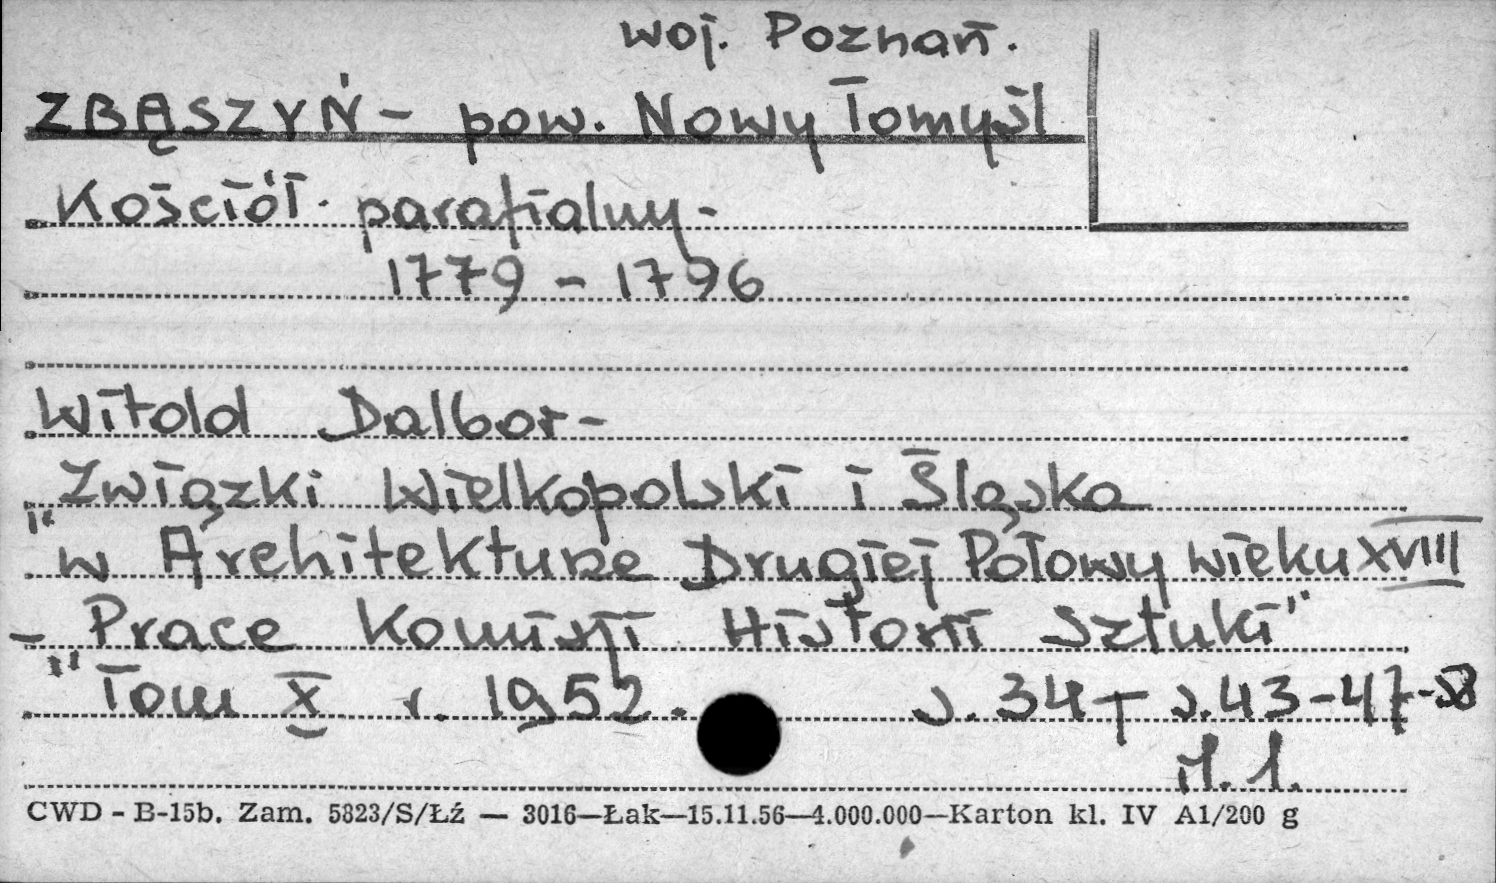 woj. Poznań.
ZBĄSZYŃ - pow. Nowy Tomyśl
Kościół parafialny -
1779 - 1796
Witold Dalbor -
Związki Wielkopolski i Śląska
"w Architekturze Drugiej Połowy wieku XVIII
- Prace Komisji Historii Sztuki"
" Tom X r. 1952. s. 34 s. 43-47-58
il. 1.
CWD - B-15b. Zam. 5823/S/Łź — 3016—Łak—15.11.56—4.000.000—Karton kl. IV A1/200 g